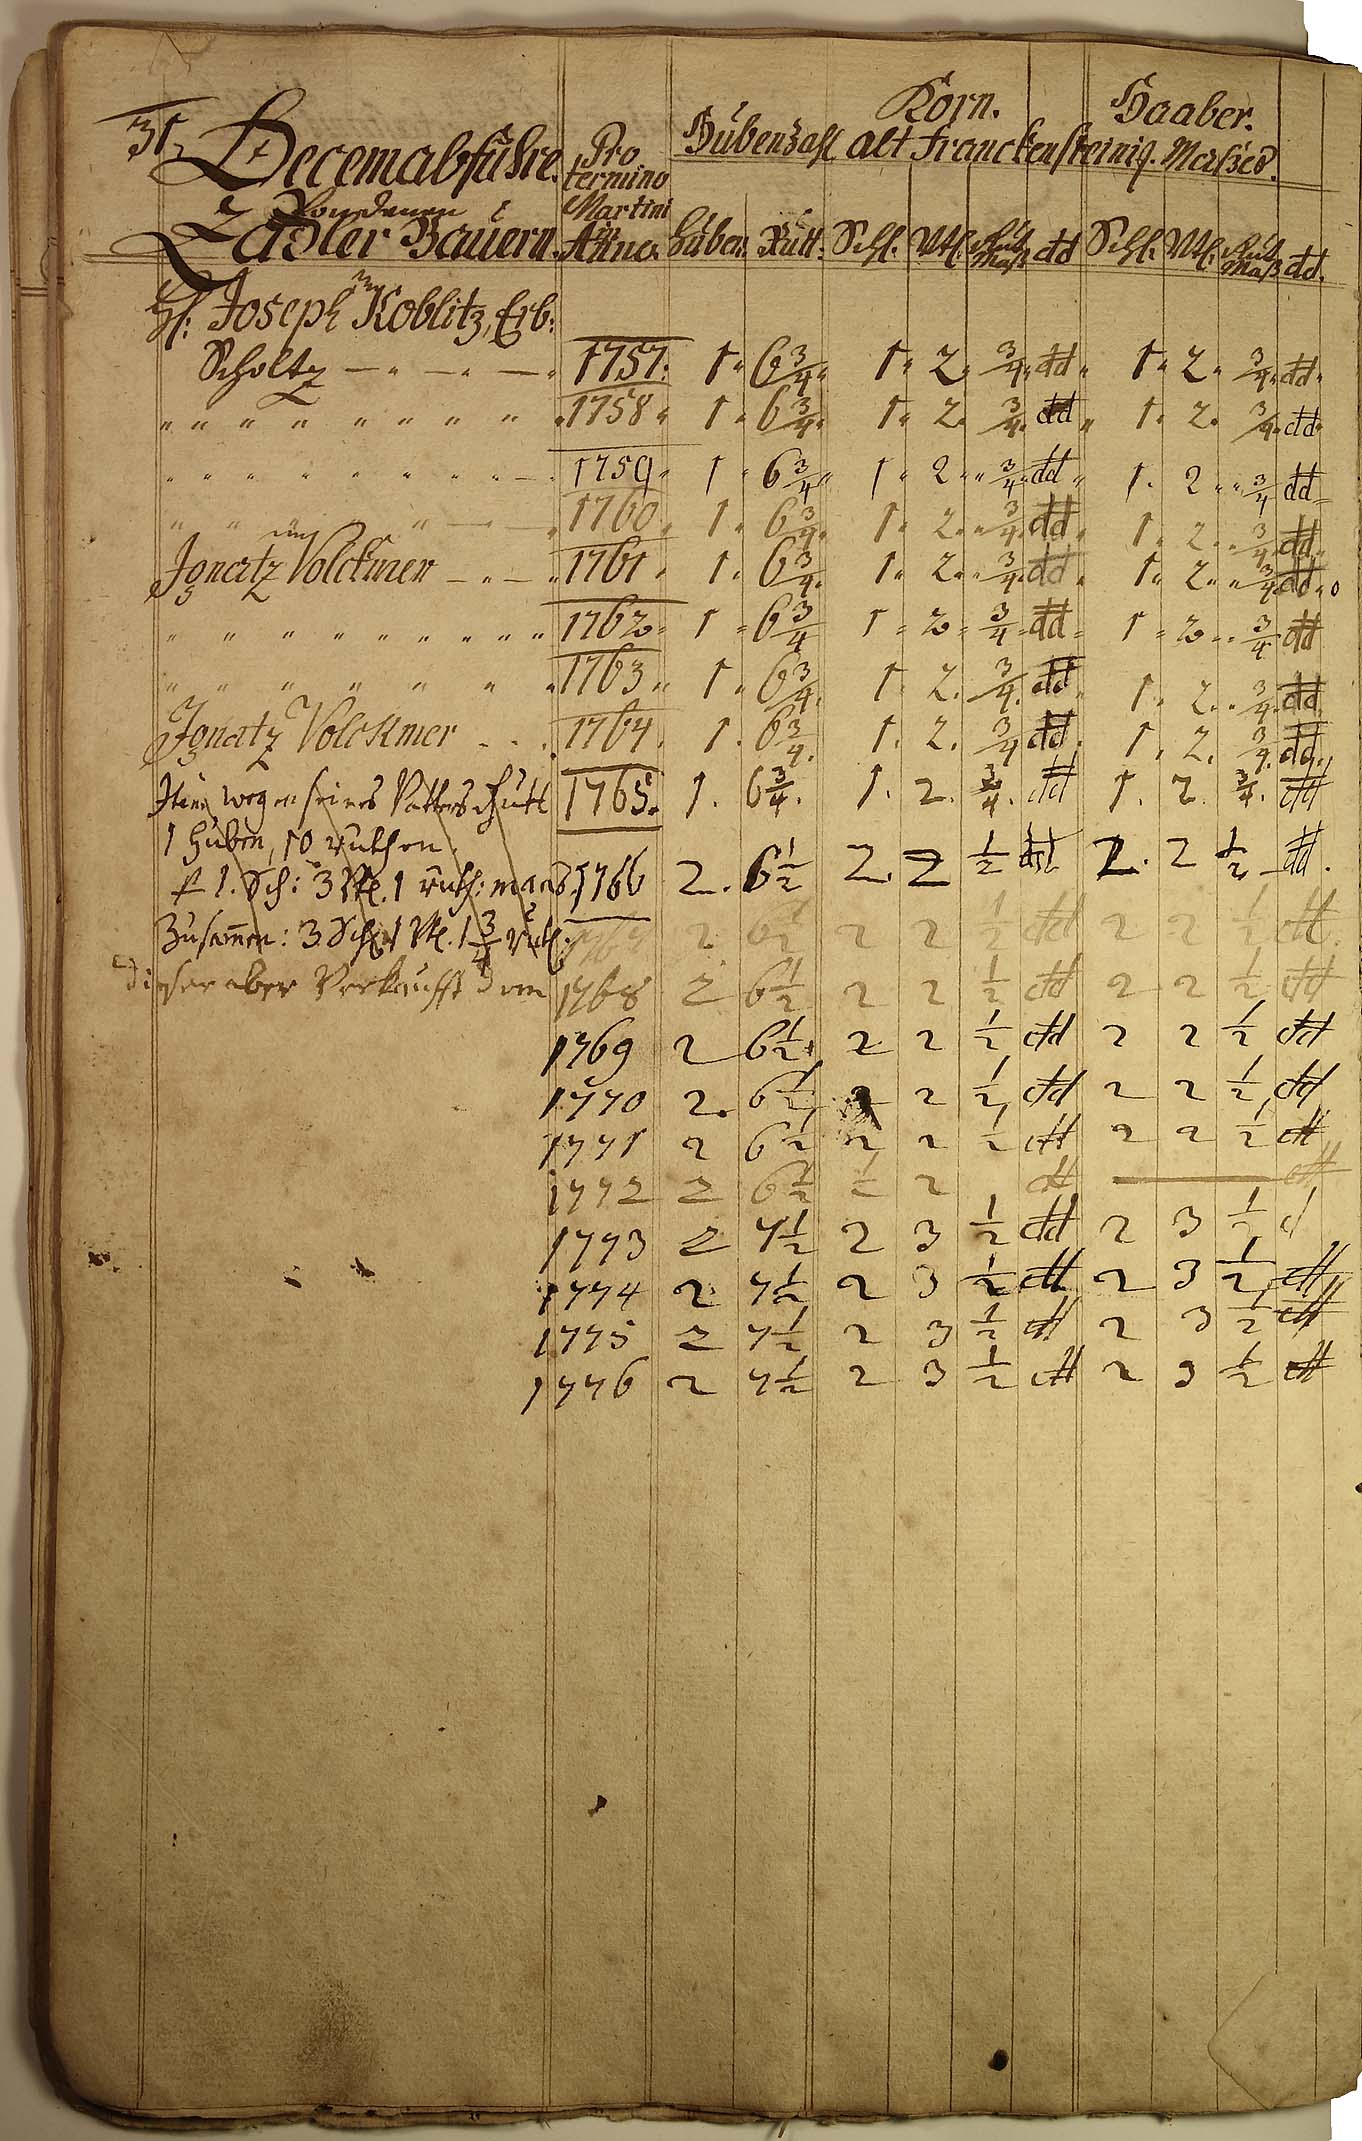 31.
Korn. Haaber.
Decemabfuhre. Pro Hubenzahl alt Franckensteinig. Maßes.
Von denen termino
Zadler Bauern. Martini
in Anno. Huben. Rutt: Schl. Vtl. Rut Maß dd Schl. Vtl. Rut Maß dd.
H: Joseph Koblitz, Erb:
Scholtz — " — " — " 1757. 1 " 6 3/4 " 1 " 2. 3/4. dd " 1 " 2 " 3/4. dd "
" " " " " " " " " " 1758 " 1 " 6 3/4. 1 " 2. 3/4. dd " 1 " 2. 3/4. dd "
" " " " " " " " " — " 1759 " 1 " 6 3/4 " 1 " 2 " " 3/4. dd " 1. 2 " " 3/4 dd "
" " " — " — " 1760 " 1 " 6 3/4. 1 " 2. " 3/4. dd " 1 " 2. " 3/4. dd "
Ignatz Volckmer — " — " 1761 " 1 " 6 3/4. 1 " 2 " " 3/4. dd " 1 " 2 " " 3/4. dd "
" " " " " " " " " " 1762 " 1 " 6 3/4 1 " 2 " 3/4 " dd " 1 " 2 " " 3/4 dd
" " " " " " " 1763 " 1 " 6 3/4. 1 " 2. 3/4. dd " 1 " 2 " " 3/4. dd
Ignatz Volckmer - - - 1764. 1. 6 3/4. 1. 2. 3/4 dd. 1. 2. 3/4. dd.
Item wegen seines Vatters Gutt 1765. 1. 6 3/4. 1. 2. 3/4. dd 1. 2. 3/4. dd
1 Huben, 10 ruthen.
1. Sch: 3 Vtl. 1 ruth: maas. 1766 2. 6 1/2 2. 2 1/2 dd 2. 2 1/2 dd.
Zusammen: 3 Schl. 1 Vtl. 1 3/4 Ruth. 1767 2 6 1/2 2 2 1/2 dd 2 2 1/2 dd.
dieser aber Verkaufft dem 1768 2 6 1/2 2 2 1/2 dd 2 2 1/2 dd
1769 2 6 1/2 2 2 1/2 dd 2 2 1/2 dd
1770 2. 6 1/2 2 2 1/2 dd 2 2 1/2 dd
1771 2 6 1/2 2 2 1/2 dd 2 2 1/2 dd
1772 2 6 1/2 2 dd — dd
1773 2 7 1/2 2 3 1/2 dd 2 3 1/2 d
1774 2 7 1/2 2 3 1/2 dd 2 3 1/2 dd
1775 2 7 1/2 2 3 1/2 dd 2 3 1/2 dd
1776 2 7 1/2 2 3 1/2 dd 2 3 1/2 dd